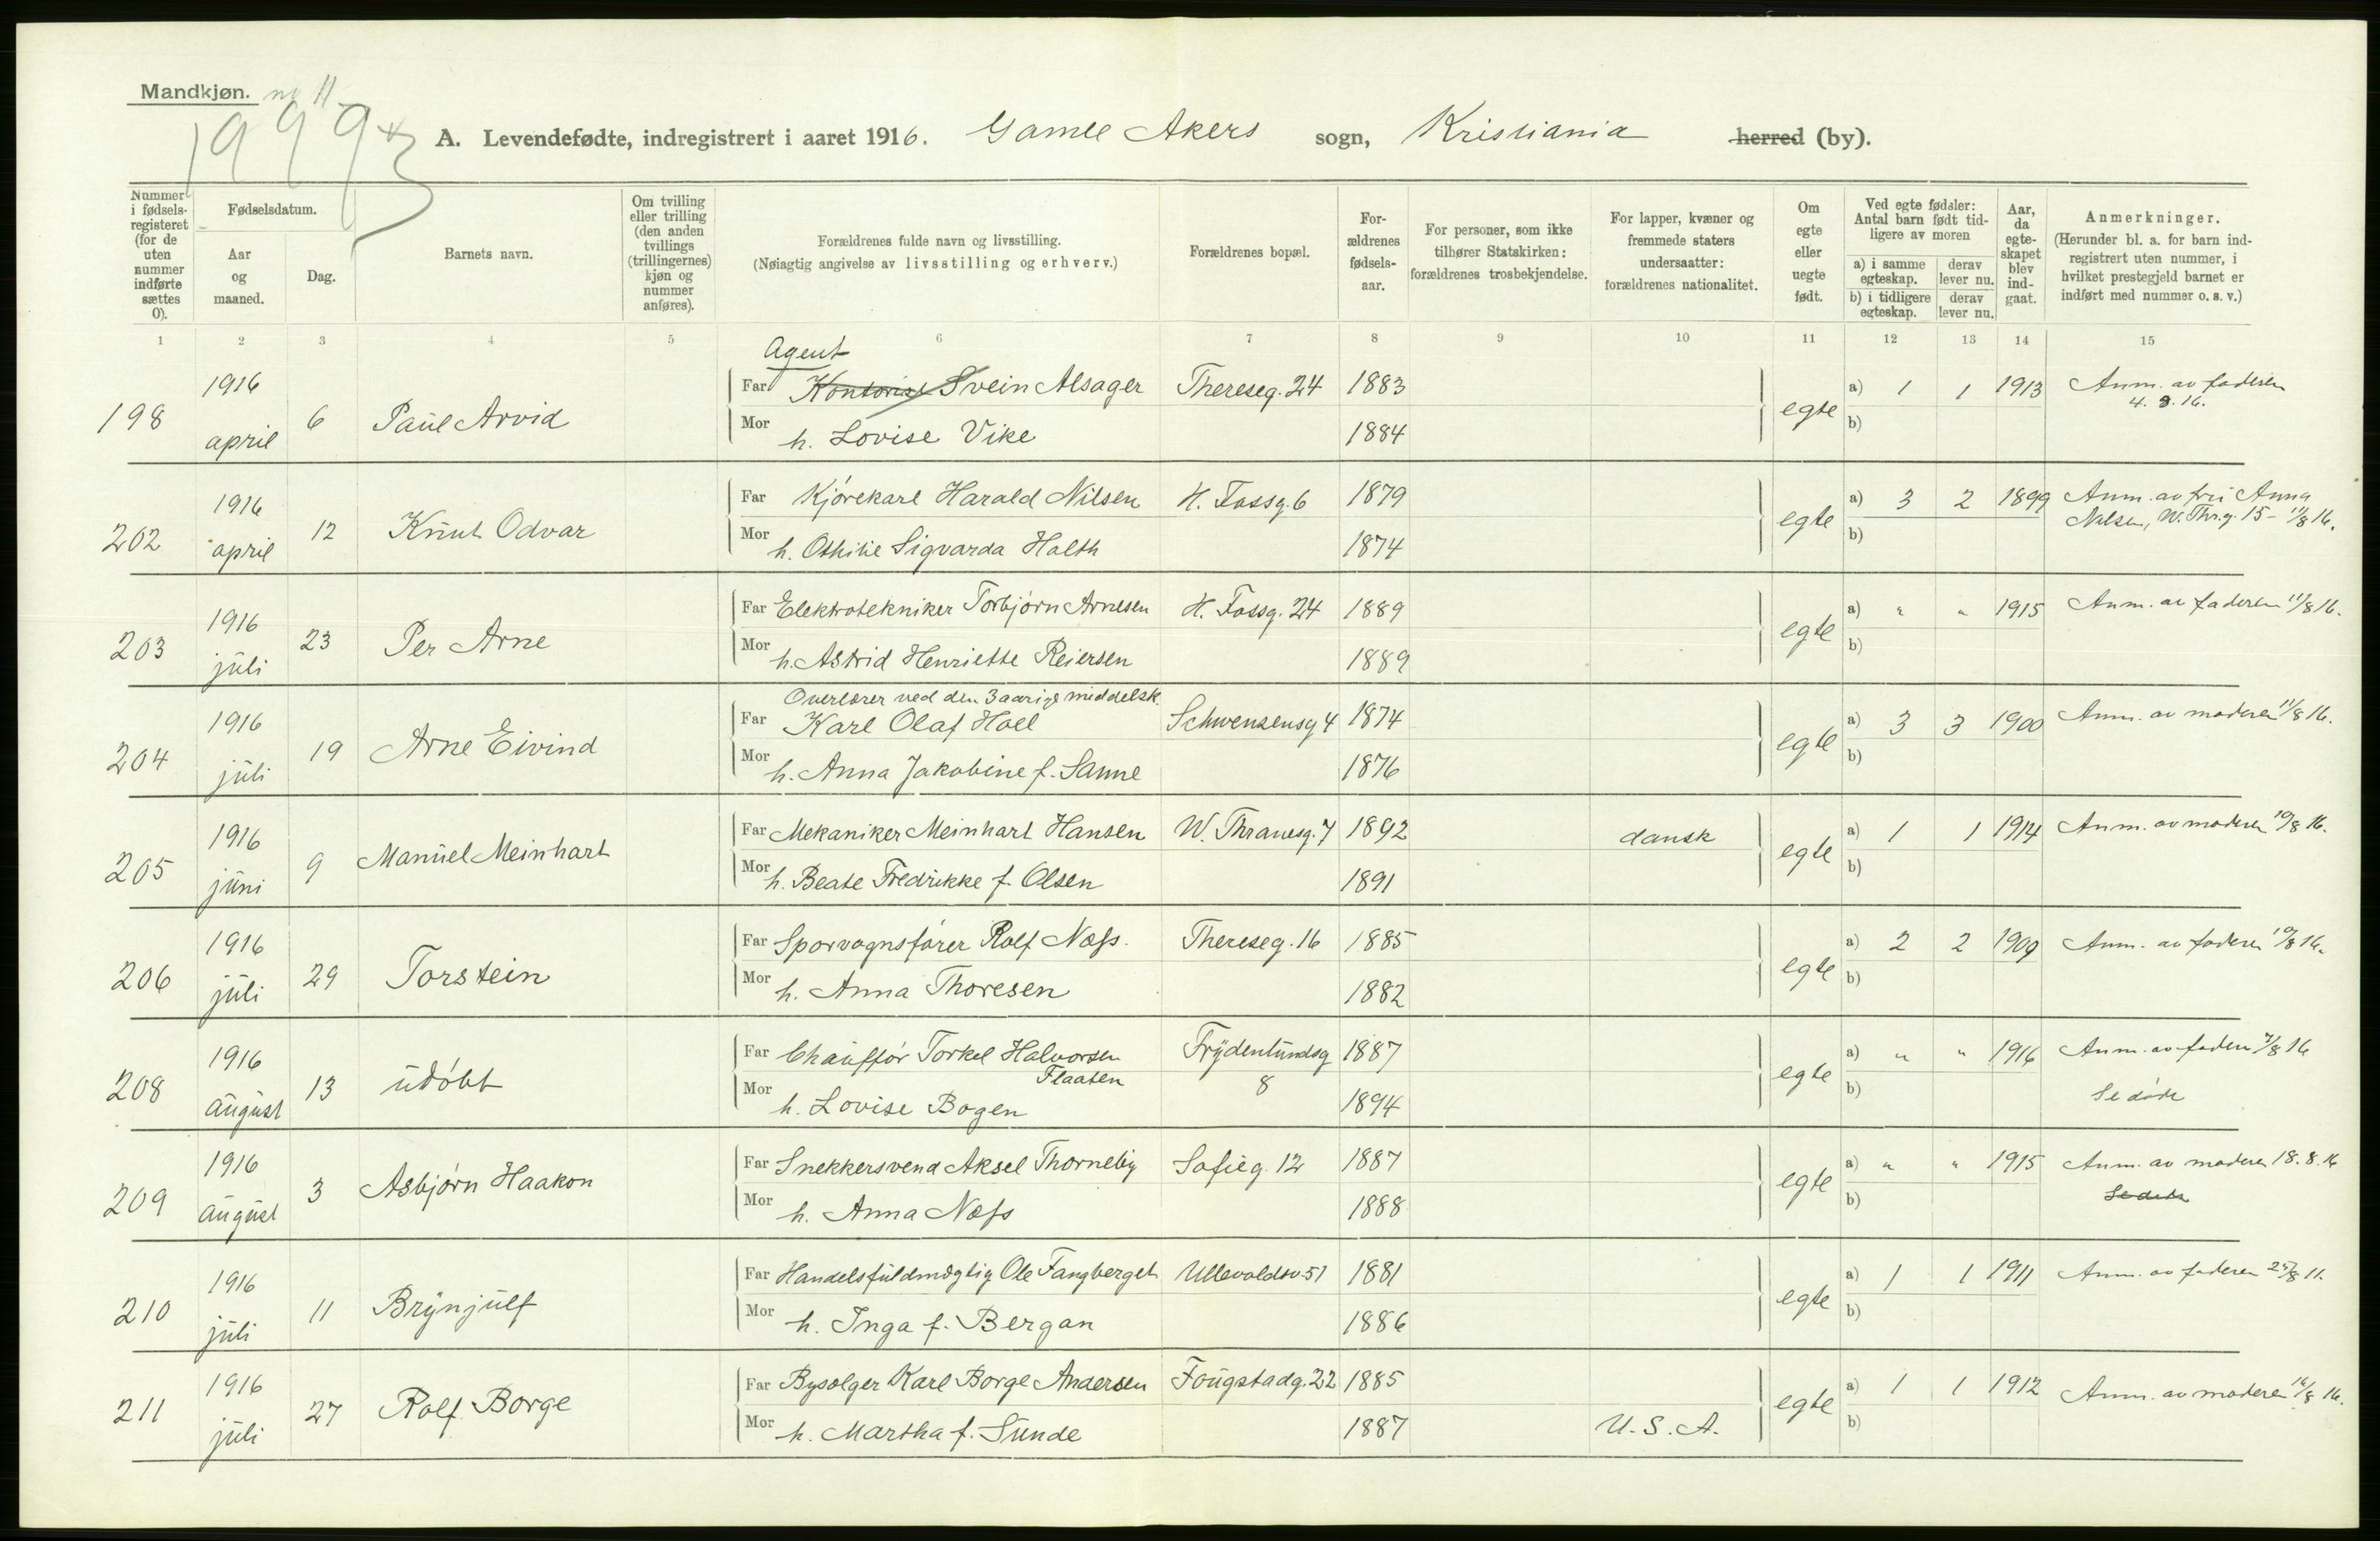 Mandkjøn. no 11
1999
A. Levendefødte, indregistrert i aaret 1916. Gamle Akers sogn, Kristiania herred (by).
Nummer i fødsels-registeret (for de uten nummer indførte sættes 0).
Fødselsdatum.
Aar og maaned.
Dag.
Barnets navn.
Om tvilling eller trilling (den anden tvillings (trillingernes) kjøn og nummer anføres).
Forældrenes fulde navn og livsstilling.
(Nøiagtig angivelse av livsstilling og erhverv.)
Forældrenes bopæl.
For-ældrenes fødsels-aar.
For personer, som ikke tilhører Statskirken: forældrenes trosbekjendelse.
For lapper, kvæner og fremmede staters undersaatter: forældrenes nationalitet.
Om egte eller uegte født.
Ved egte fødsler: Antal barn født tid-ligere av moren
a) i samme egteskap. derav lever nu.
b) i tidligere egteskap. derav lever nu.
Aar, da egte-skapet blev ind-gaat.
Anmerkninger.
(Herunder bl. a. for barn ind-registrert uten nummer, i hvilket prestegjeld barnet er indført med nummer o. s. v.)
1 2 3 4 5 6 7 8 9 10 11 12 13 14 15
198 1916 april 6 Paul Arvid
Agent
Far Kontorist Svein Alsager Thereseg. 24 1883
Mor h. Lovise Vike 1884
egte a) 1 1 1913 Anm. av faderen
b) 4. 8. 16.
202 1916 april 12 Knut Odvar
Far Kjørekarl Harald Nilsen H. Fossg. 6 1879
Mor h. Othilie Sigvarda Halth 1874
egte a) 3 2 1899 Anm. av frü Anna
b) Nilsen, W. Thr.g. 15 - 11/8 16.
203 1916 juli 23 Per Arne
Far Elektrotekniker Torbjørn Arnesen H. Fossg. 24 1889
Mor h. Astrid Henriette Reiersen 1889
egte a) " " 1915 Anm. av faderen 11/8 16.
b)
204 1916 juli 19 Arne Eivind
Overlærer ved den 3 aarige middelsk.
Far Karl Olaf Hoel Schwensensg 4 1874
Mor h. Anna Jakobine f. Sanne 1876
egte a) 3 3 1900 Anm. av moderen 11/8 16.
b)
205 1916 juni 9 Manuel Meinhart
Far Mekaniker Meinhart Hansen W. Thranesg. 7 1892 dansk
Mor h. Beate Fredrikke f. Olsen 1891
egte a) 1 1 1914 Anm. av moderen 10/8 16.
b)
206 1916 juli 29 Torstein
Far Sporvognsfører Rolf Næss. Thereseg. 16 1885
Mor h. Anna Thoresen 1882
egte a) 2 2 1909 Anm. av faderen 10/8 16.
b)
208 1916 august 13 udøbt
Far Chauffør Torkel Halvorsen Flaaten Frydenlundsg 8 1887
Mor h. Lovise Bogen 1894
egte a) " " 1916 Anm. av faderen /8 16
b) Se døde
209 1916 august 3 Asbjørn Haakon
Far Snekkersvend Aksel Thorneby Sofieg. 12 1887
Mor h. Anna Næss 1888
egte a) " " 1915 Anm. av moderen 18. 8. 16
b) Se døde
210 1916 juli 11 Brynjulf
Far Handelsfuldmægtig Ole Fangberget Ullevoldsv. 51 1881
Mor h. Inga f. Bergan 1886
egte a) 1 1 1911 Anm. av faderen 25/8 11.
b)
211 1916 juli 27 Rolf Borge
Far Bysælger Karl Borge Andersen Fougstadg. 22 1885
Mor h. Martha f. Sunde 1887 U. S. A.
egte a) 1 1 1912 Anm. av moderen 16/8 16.
b)